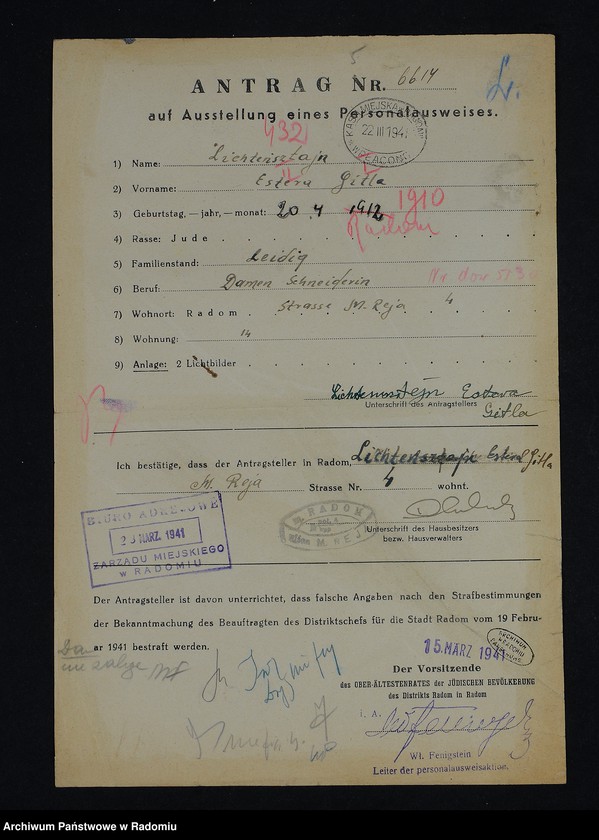 5
ANTRAG NR. 6614
auf Ausstellung eines Personalausweises.
KASA MIEJSKA
22 III 1941
WPŁACONO
432
1) Name: Lichtensztajn
2) Vorname: Estera Gitla
3) Geburtstag, — jahr, — monat: 20 4 1912 1910
Radom
4) Rasse: Jude
5) Familienstand: Leidig
6) Beruf: Damen Schneiderin
7) Wohnort: Radom Strasse M. Reja 4
8) Wohnung: 14
9) Anlage: 2 Lichtbilder
Gitla
Unterschrift des Antragstellers
Ich bestätige, dass der Antragsteller in Radom, Lichtensztajn Estera Gitla
M. Reja Strasse Nr. 4 wohnt.
RADOM
M. REJA
Unterschrift des Hausbesitzers
bezw. Hausverwalters
BIURO ADRESOWE
23 MARZ. 1941
ZARZĄDU MIEJSKIEGO
W RADOMIU
Der Antragsteller ist davon unterrichtet, dass falsche Angaben nach den Strafbestimmungen
der Bekanntmachung des Beauftragten des Distriktschefs für die Stadt Radom vom 19 Febru-
ar 1941 bestraft werden.
15. MÄRZ 1941
Der Vorsitzende
des OBER-ÄLTESTENRATES DER JÜDISCHEN BEVÖLKERUNG
des Distrikts Radom in Radom
i. A.
Wł. Fenigstein
Leiter der personalausweisaktion.
Archiwum Państwowe w Radomiu